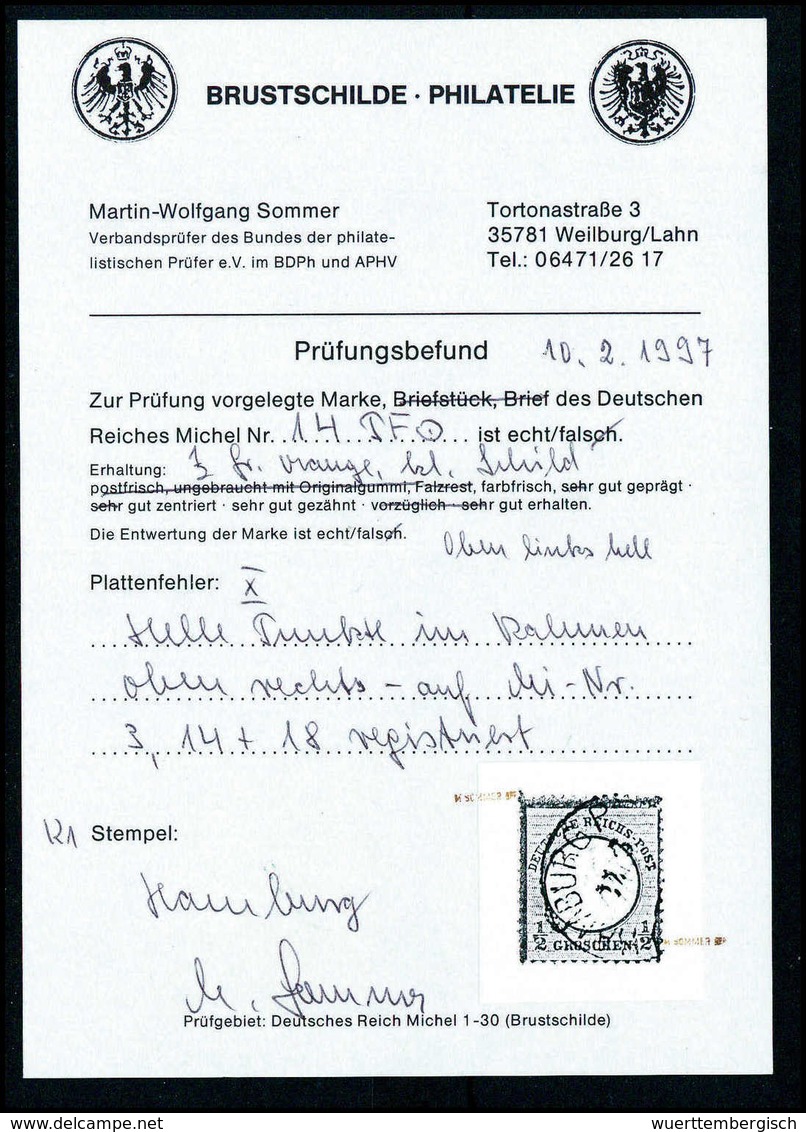 BRUSTSCHILDE · PHILATELIE
Martin-Wolfgang Sommer
Verbandsprüfer des Bundes der philate-
listischen Prüfer e.V. im BDPh und APHV
Tortonastraße 3
35781 Weilburg/Lahn
Tel.: 06471/26 17
Prüfungsbefund 10. 2. 1997
Zur Prüfung vorgelegte Marke, Briefstück, Brief des Deutschen
Reiches Michel Nr. 14 PF ist echt/falsch.
Erhaltung: Gr. orange, kl. Schild
postfrisch, ungebraucht mit Originalgummi, Falzrest, farbfrisch, sehr gut geprägt ·
sehr gut zentriert · sehr gut gezähnt · vorzüglich · sehr gut erhalten.
Die Entwertung der Marke ist echt/falsch.
Oben links hell
Plattenfehler: X
Helle Punkte im Rahmen
oben rechts - auf Mi-Nr.
3, 14 + 18 registriert
K1 Stempel:
Hamburg
M. Sommer
M SOMMER BPP
DEUTSCHE REICHS-POST
HAMBURG
1/2 GROSCHEN 1/2
M SOMMER BPP
Prüfgebiet: Deutsches Reich Michel 1-30 (Brustschilde)
wuerttembergisch